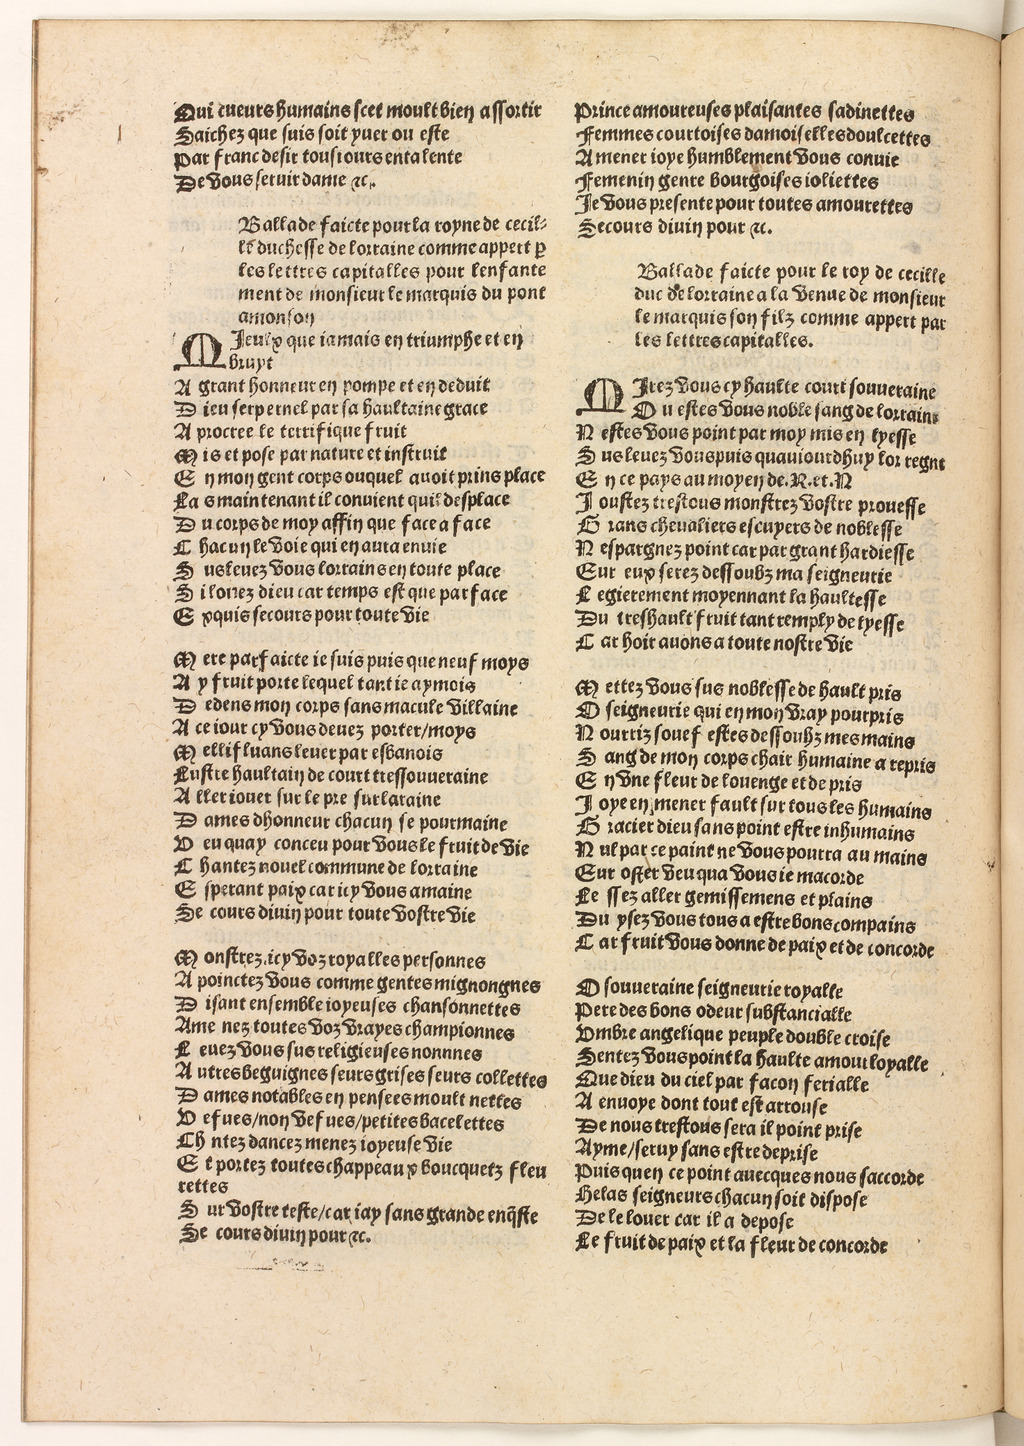 Qui cueurs humains scet moult bien assortir
Saichez que suis soit yuer ou este
Par franc desir tousiours entalente
De vous seruir dame ⁊c.
Ballade faicte pour la royne de cecil-
le duchesse de lorraine comme appert ꝑ
les lettres capitalles pour lenfante
ment de monsieur le marquis du pont
amonson
MJeulx que iamais en triumphe et en
bruyt
A grant honneur en pompe et en deduit
D ieu serpernel par sa haultaine grace
A procree le terrifique fruit
M is et pose par nature et instruit
E n mon gent corps ouquel auoit prins place
La s maintenant il conuient quil desplace
D u corps de moy affin que face a face
C hacun le voie qui en aura enuie
S us leuez vous lorrains en toute place
S i louez dieu car temps est que par face
E xquis secours pour toute vie
M ere parfaicte ie suis puis que neuf moys
A y fruit porte lequel tant ie aymois
D edens mon corps sans macule villaine
A ce iour cy vous deuez porter/moys
M ellifluans leuer par esbanois
Lustre haultain de court tressouueraine
A ller iouer sur le pre sur laraine
D ames dhonneur chacun se pourmaine
V eu quay conceu pour vous le fruit de vie
C hantez nouel commune de lorraine
E sperant paix car icy vous amaine
Se cours diuin pour toute vostre vie
M onstrez icy voz royalles personnes
A poinctez vous comme gentes mignongnes
D isant ensemble ioyeuses chansonnettes
Ame nez toutes voz vrayes championnes
L euez vous sus religieuses nonnnes
A utres beguignes seurs grises seurs collettes
D ames notables en pensees moult nettes
V efues/non vefues/petites bacelettes
Ch ntez dancez menez ioyeuse vie
E t portez toutes chappeaux boucquetz fleu
rettes
S ur vostre teste/car iay sans grande enq̃ste
Se cours diuin pour ⁊c.
Prince amoureuses plaisantes sadinettes
Femmes courtoises damoiselles doulcettes
A mener ioye humblement vous conuie
Femenin genre bourgoises ioliettes
Je vous presente pour toutes amourettes
Secours diuin pour ⁊c.
Ballade faicte pour le roy de cecille
duc de lorraine a la venue de monsieur
le marquis son filz comme appert par
les lettres capitalles.
MJrez vous cy haulte court souueraine
O u estes vous noble sang de lorraine
N estes vous point par moy mis en lyesse
S us leuez vous puis quauiourdhuy lor regne
E n ce pays au moyen de.R.et.N
J oustez trestous monstrez vostre prouesse
G rans cheualiers escuyers de noblesse
N espargnez point car par grant hardiesse
Eur eux serez dessoubz ma seigneurie
L egierement moyennant la haultesse
Du treshault fruit tant remply de lyesse
C ar hoir auons a toute nostre vie
M ettez vous sus noblesse de hault pris
O seigneurie qui en mon vray pourpris
N ourriz souef estes dessoubz mes mains
S ang de mon corps chair humaine a repris
E n vne fleur de louenge et de pris
J oye en mener fault sur tous les humains
G racier dieu sans point estre inhumains
N ul par ce paint ne vous pourra au mains
Eur oster veu qua vous ie macorde
Le ssez aller gemissemens et plains
Du ysez vous tous a estre bons compains
C ar fruit vous donne de paix et de concorde
O souueraine seigneurie royalle
Pere des bons odeur substancialle
Vmbre angelique peuple double croise
Sentez vous point la haulte amour loyalle
Que dieu du ciel par facon ferialle
A enuoye dont tout est arrouse
De nous trestous sera il point prise
Ayme/seruy sans estre deprise
Puis quen ce point auecques nous saccorde
Helas seigneurs chacun soit dispose
De le louer car il a depose
Le fruit de paix et la fleur de concorde